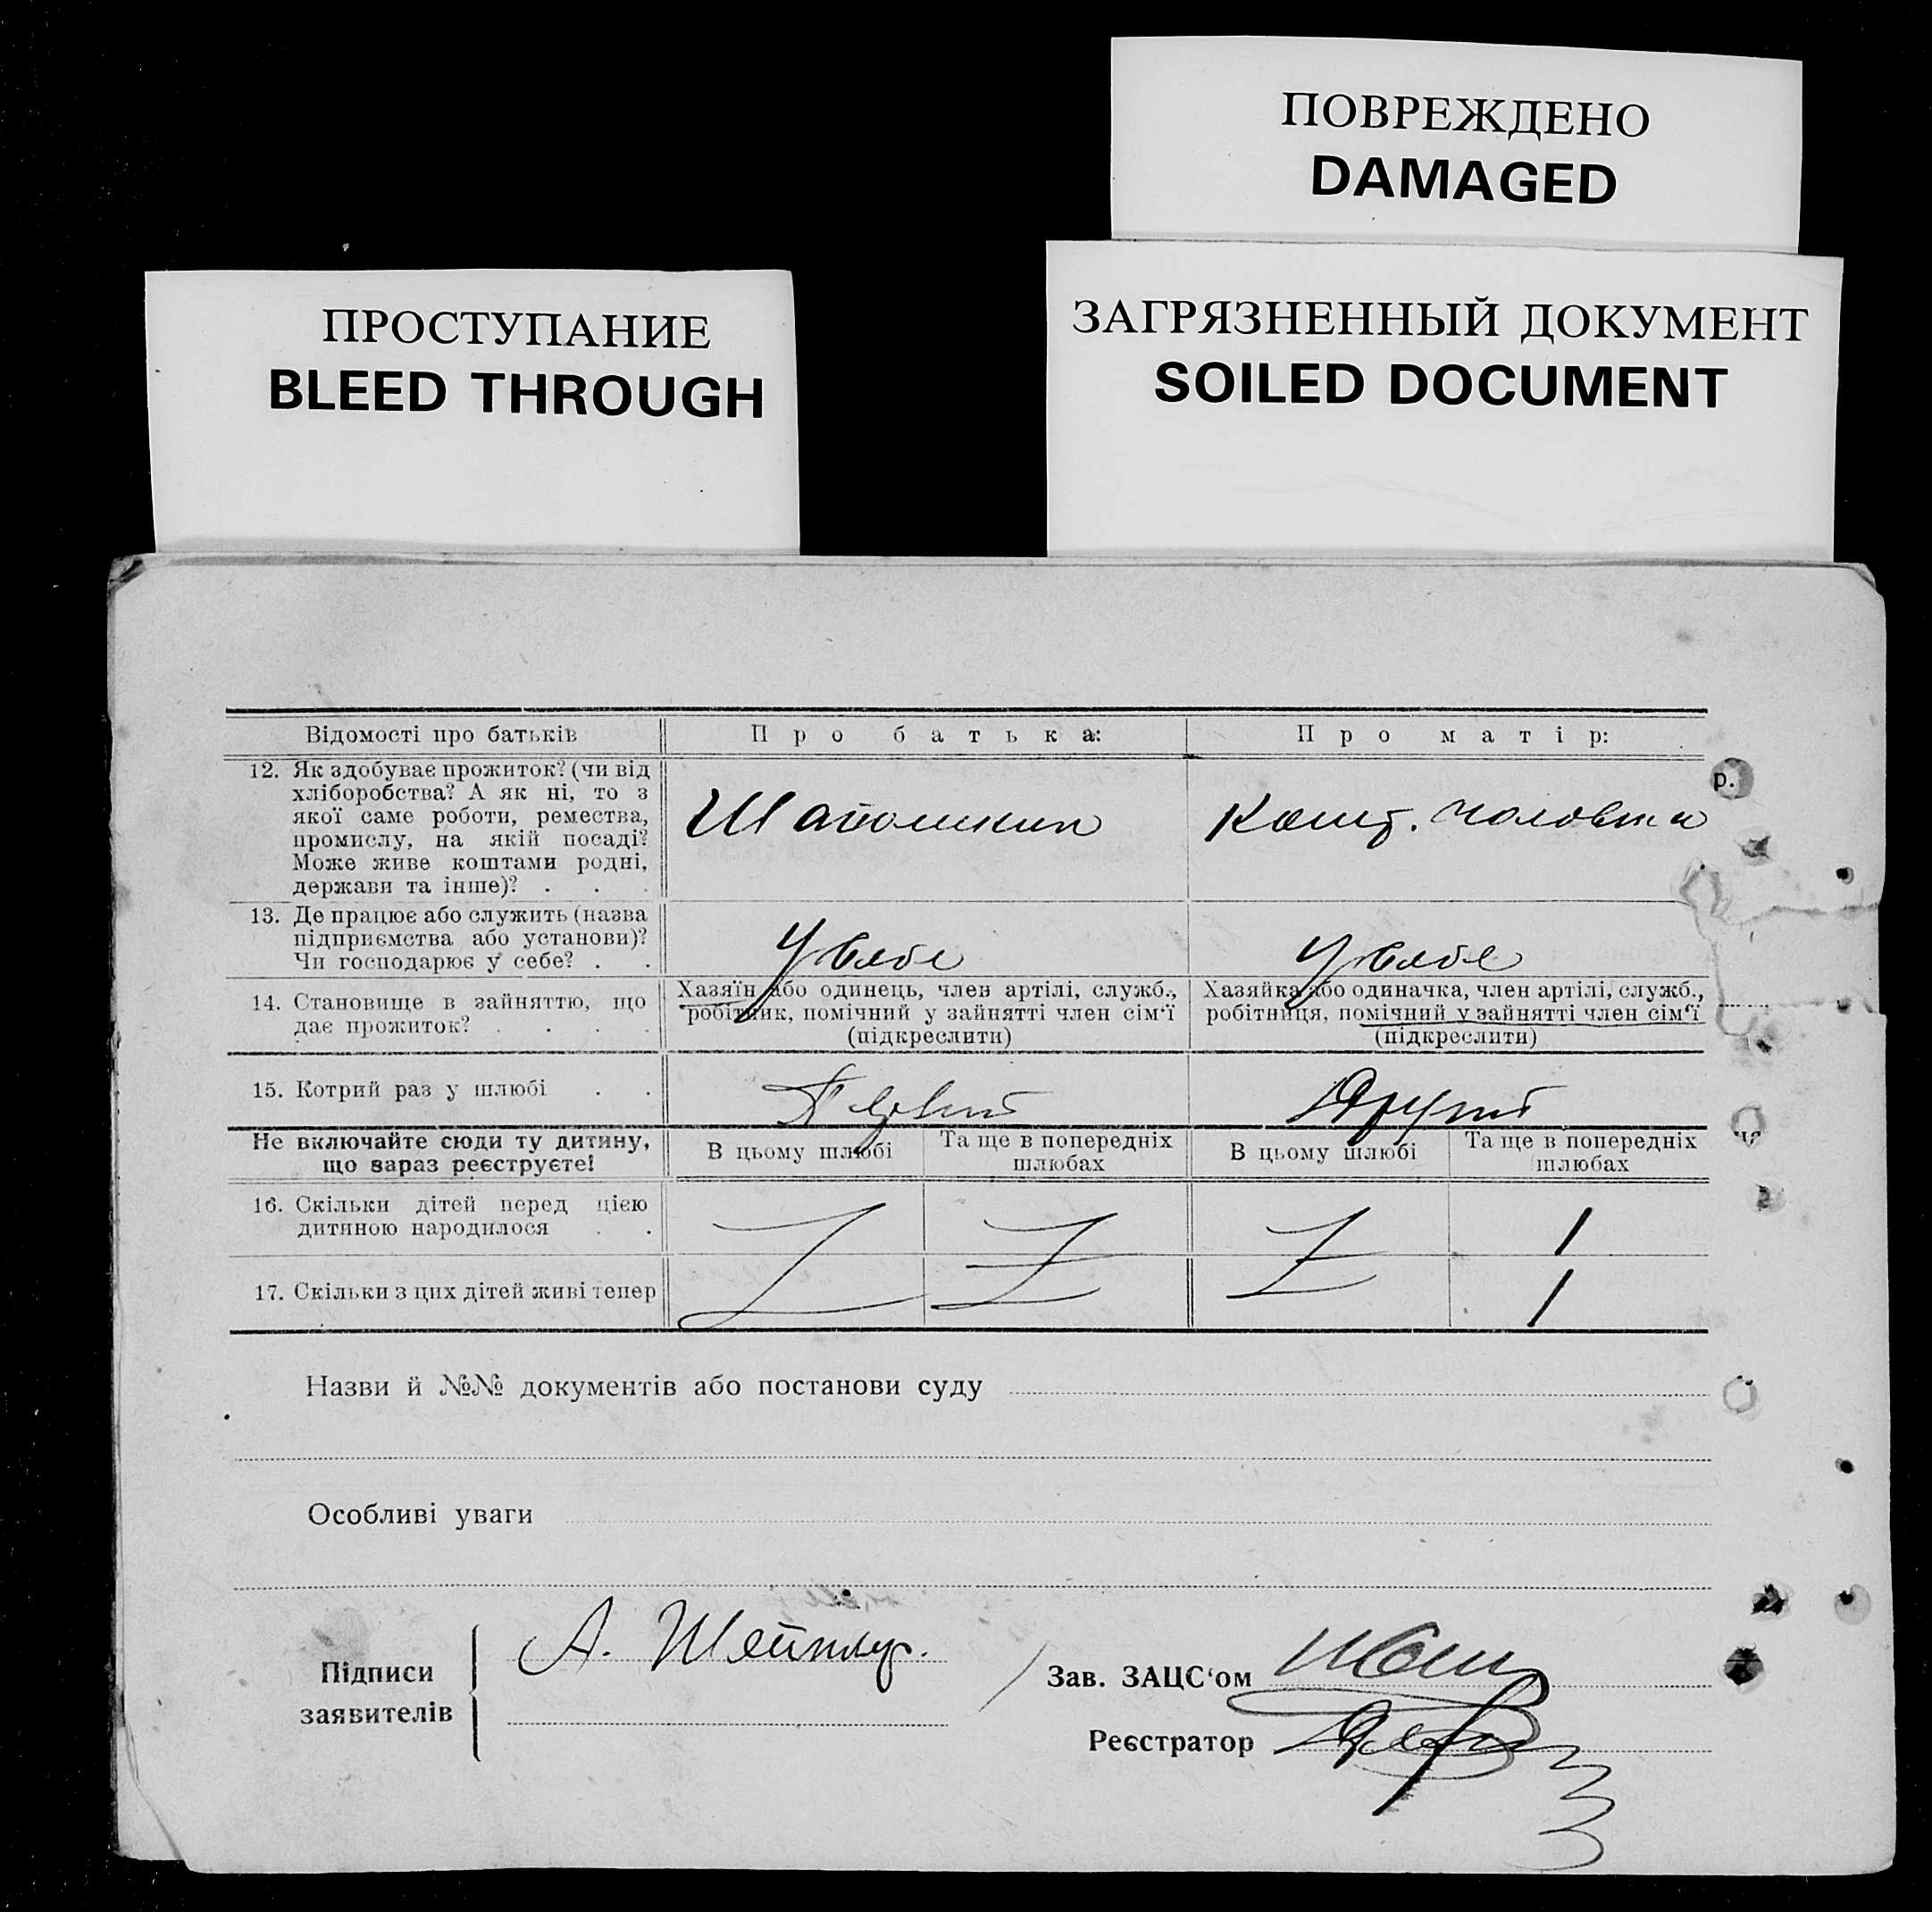 ПОВРЕЖДЕНО
DAMAGED
ПРОСТУПАНИЕ
BLEED THROUGH
ЗАГРЯЗНЕННЫЙ ДОКУМЕНТ
SOILED DOCUMENT
Відомості про батьків
Про батька:
Про матір:
12. Як здобуває прожиток? (чи від
хліборобства? А як ні, то з
якої саме роботи, ремества,
промислу, на якій посаді?
Може живе коштами родні,
держави та інше)? . . .
Кошт. чоловіка
р.
13. Де працює або служить (назва
підприємства або установи)?
Чи господарює у себе? . .
У себе
У себе
14. Становище в зайняттю, що
дає прожиток? . . . .
Хазяїн або одинець, член артілі, служб.,
робітник, помічний у зайнятті член сім'ї
(підкреслити)
Хазяйка або одиначка, член артілі, служб.,
робітниця, помічний у зайнятті член сім'ї
(підкреслити)
15. Котрий раз у шлюбі . .
Первий
Другий
Не включайте сюди ту дитину,
що зараз реєструєте!
В цьому шлюбі
Та ще в попередніх
шлюбах
В цьому шлюбі
Та ще в попередніх
шлюбах
16. Скільки дітей перед цією
дитиною народилося . .
1
17. Скільки з цих дітей живі тепер
1
Назви й №№ документів або постанови суду
Особливі уваги
Підписи
заявителів
А.
Зав. ЗАЦС'ом
Реєстратор